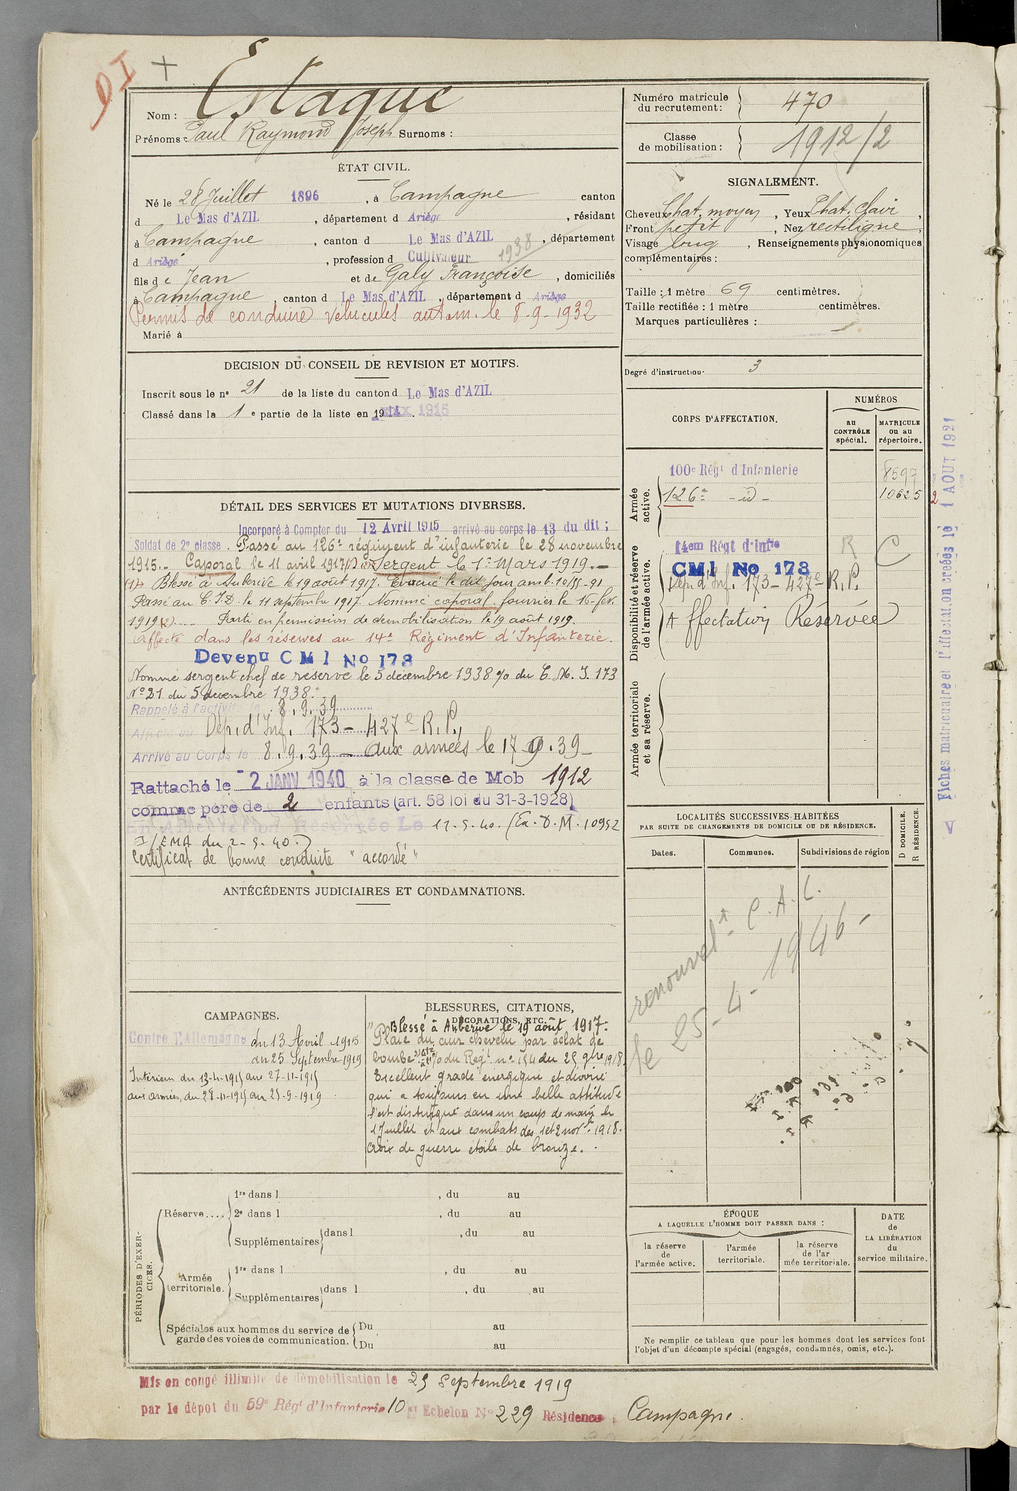 DI +
Nom : Estaque
Prénoms : Paul Raymond Joseph Surnoms :
ÉTAT CIVIL.
Né le 28 Juillet 1896, à Campagne canton
d Le Mas d'AZIL, département d Ariège, résidant
à Campagne, canton d Le Mas d'AZIL, département
d Ariège, profession d Cultivateur 1938
fils de Jean et de Galy Françoise, domiciliés
à Campagne, canton d Le Mas d'AZIL, département d Ariège
Permis de conduire véhicules autom. le 8-9-1932
Marié à
DÉCISION DU CONSEIL DE REVISION ET MOTIFS.
Inscrit sous le n° 21 de la liste du canton d Le Mas d'AZIL
Classé dans la 1 e partie de la liste en 19 1915
DÉTAIL DES SERVICES ET MUTATIONS DIVERSES.
Incorporé à Compter du 12 Avril 1915 arrivé au corps le 13 du dit ;
Soldat de 2e classe. Passé au 126e régiment d'infanterie le 28 novembre
1915.- Caporal le 11 avril 1917 Sergent le 1er Mars 1919.-
(1) Blessé à Auberive le 19 août 1917. Evacué le dit jour amb. 10/55-91
Passé au C.I.D. le 11 septembre 1917. Nommé caporal fourrier le 16 fév.
1919 Parti en permission de démobilisation le 19 août 1919.
Affecté dans les réserves au 14e Régiment d'Infanterie.
Devenu CMI No 173
Nommé sergent chef de réserve le 5 décembre 1938 % du C. M. I. 173
N° 21 du 5 décembre 1938.
Rappelé à l'activité le 8.9.39
Dép. d'Inf. 173 - 427e R.P.
Arrivé au Corps le 8.9.39 - aux armées le 17.9.39-
Rattaché le 2 JANV 1940 à la classe de Mob 1912
comme père de 2 enfants (art. 58 loi du 31-3-1928)
en Affectation Réservée Le 12-5-40. (Ex. D.M. 10952
I/EMA du 2-5-40.)
Certificat de bonne conduite "accordé"
ANTÉCÉDENTS JUDICIAIRES ET CONDAMNATIONS.
CAMPAGNES.
Contre l'Allemagne du 13 Avril 1915
au 25 Septembre 1919
Intérieur du 13-4-1915 au 27-11-1915
aux armées, du 28-11-1915 au 25-9-1919
BLESSURES, CITATIONS,
DÉCORATIONS, ETC.
Blessé à Auberive le 19 août 1917.
Plaie du cuir chevelu par éclat de
bombe. % du Regt n° 154 du 25 9bre 1918
Excellent gradé énergique et dévoué
qui a toujours eu une belle attitude
s'est distingué dans un coup de main du
1 Juillet et aux combats des 1 et 2 novbre 1918.
Croix de guerre étoile de bronze.
PÉRIODES D'EXERCICES.
Réserve....
1re dans l , du au
2e dans l , du au
Supplémentaires dans l , du au
Armée territoriale.
1re dans l , du au
Supplémentaires dans l , du au
Spéciales aux hommes du service de garde des voies de communication.
Du au
Du au
Mis en congé illimité de démobilisation le 25 Septembre 1919
par le dépôt du 59e Régt d'Infanterie 10 e Echelon N° 229 Résidence : Campagne.
Numéro matricule du recrutement : 470
Classe de mobilisation : 1912/2
SIGNALEMENT.
Cheveux Chat. moyen, Yeux Chat. clair,
Front petit, Nez rectiligne,
Visage long, Renseignements physionomiques
complémentaires :
Taille : 1 mètre 69 centimètres.
Taille rectifiée : 1 mètre centimètres.
Marques particulières :
Degré d'instruction. 3
CORPS D'AFFECTATION.
NUMÉROS
au CONTRÔLE spécial.
MATRICULE ou au répertoire.
Armée active.
100e Régt d'Infanterie 8597
126e - id - 10625
Disponibilité et réserve de l'armée active.
14em Régt d'Infie R C
CMI No 173
Dép. d'Inf. 173-427e R.P.
Affectation Réservée
Armée territoriale et sa réserve.
LOCALITÉS SUCCESSIVES HABITÉES
PAR SUITE DE CHANGEMENTS DE DOMICILE OU DE RÉSIDENCE.
D DOMICILE. R RÉSIDENCE.
Dates. Communes. Subdivisions de région
renouvelt C.A.C.
le 25-4-1946-
ÉPOQUE
A LAQUELLE L'HOMME DOIT PASSER DANS :
la réserve de l'armée active.
l'armée territoriale.
la réserve de l'armée territoriale.
DATE de LA LIBÉRATION du service militaire.
Ne remplir ce tableau que pour les hommes dont les services font
l'objet d'un décompte spécial (engagés, condamnés, omis, etc.).
Fiches matriculaire et d'affectation créées le 1 AOUT 1921